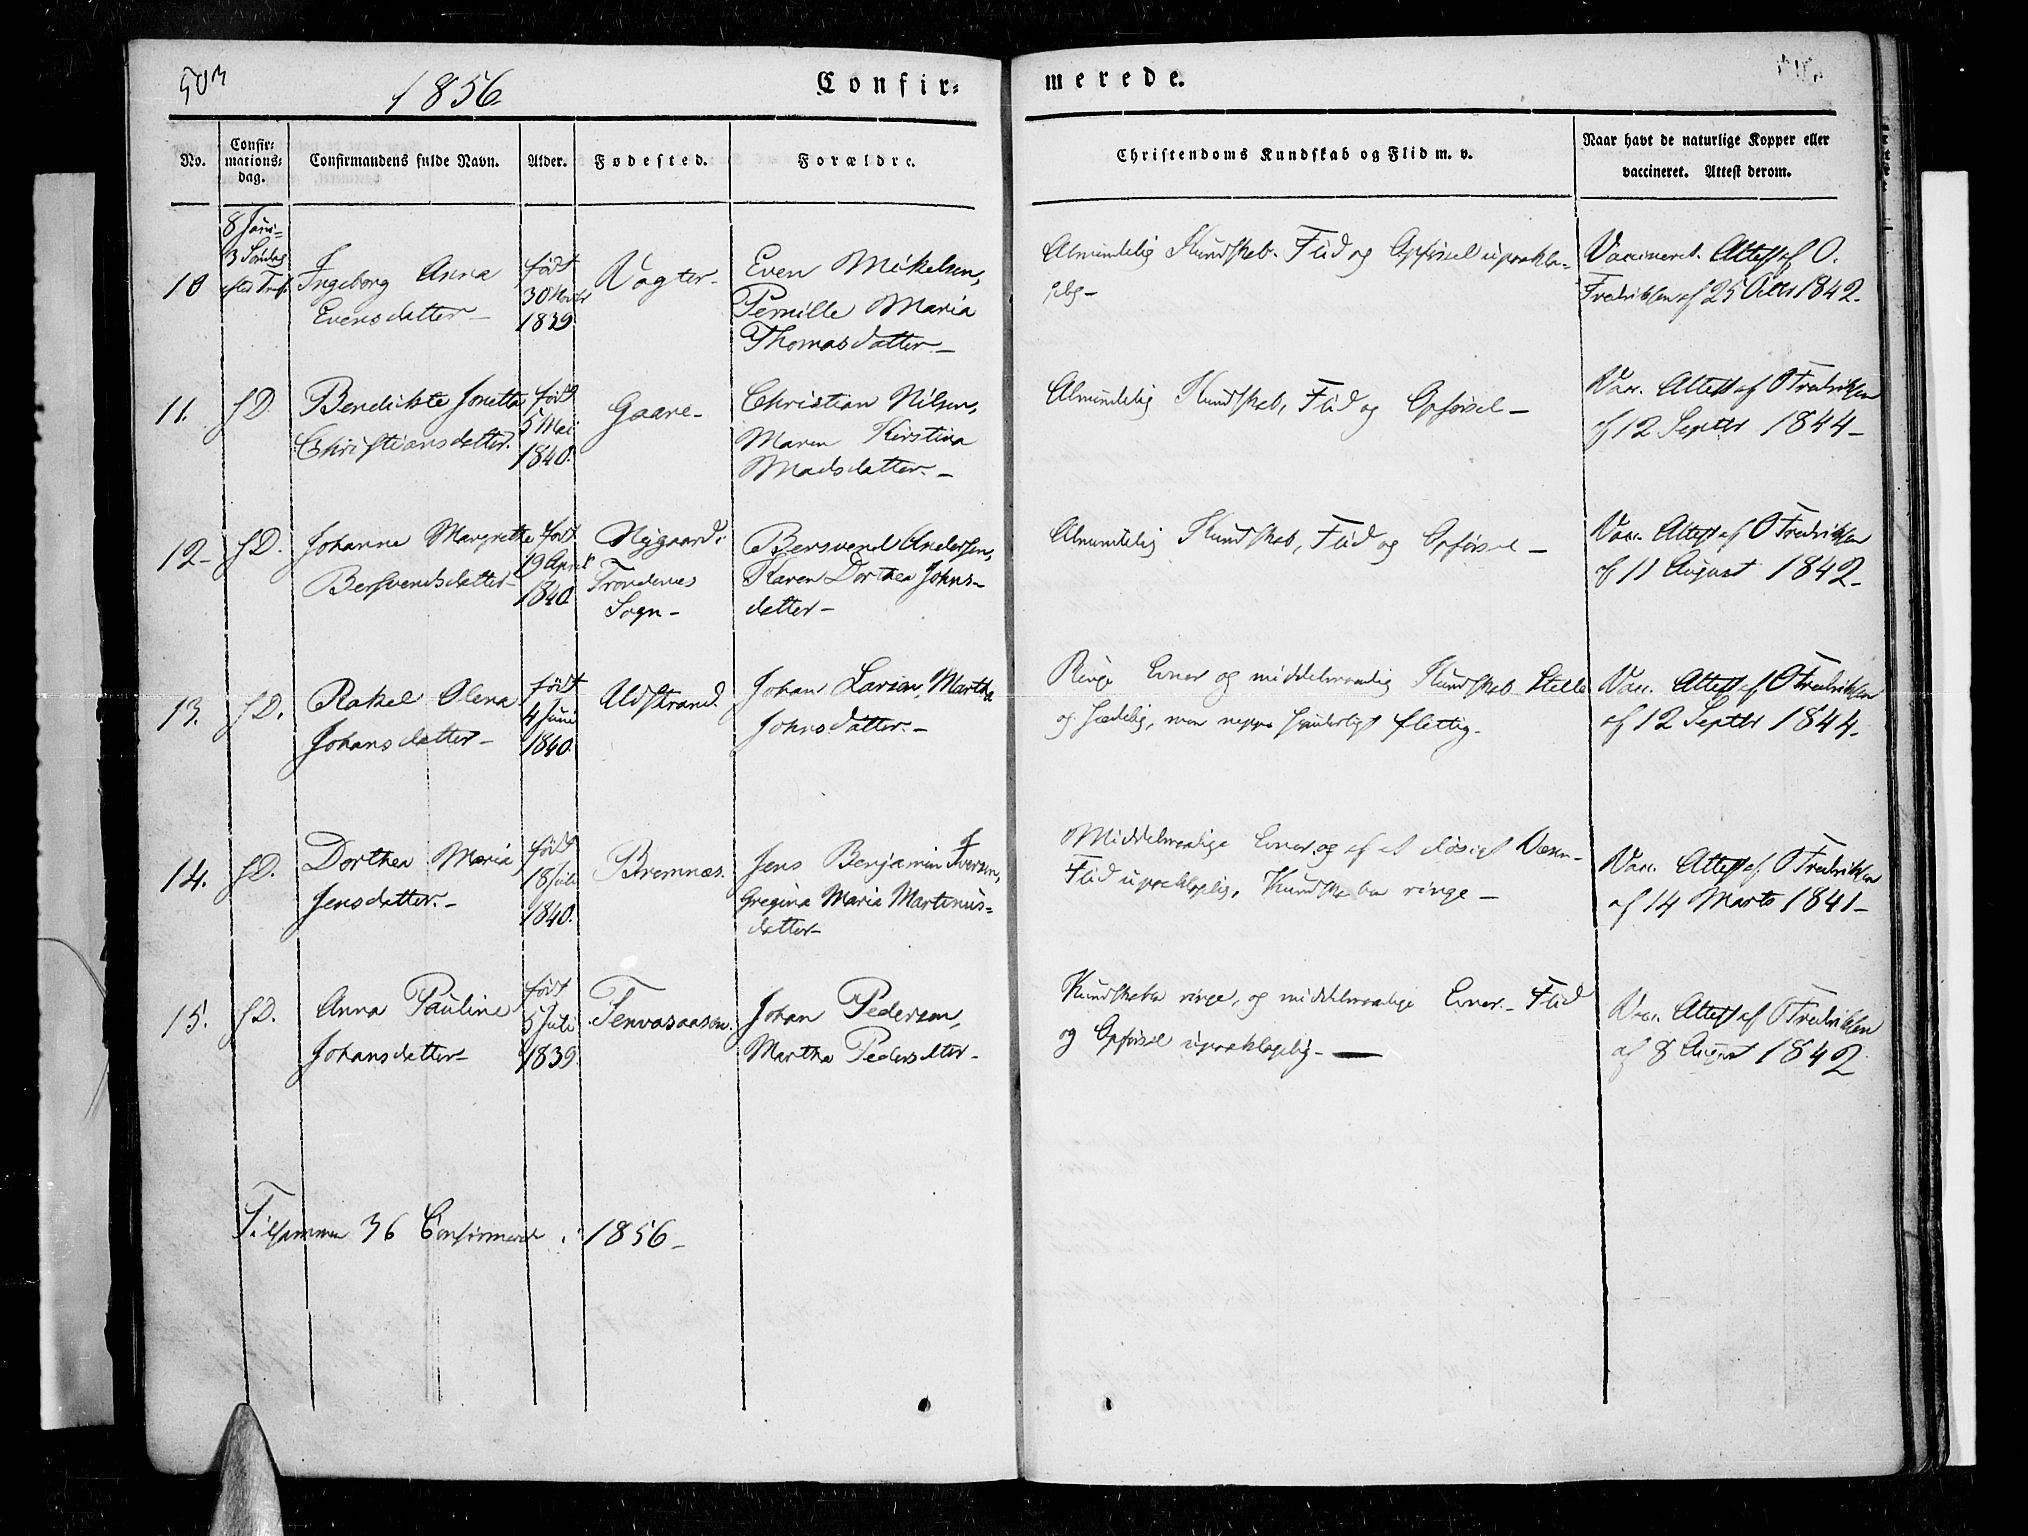 503
1856
Confir-
merede.
No.
Confir-
mations-
dag.
Confirmandens fulde Navn.
Alder.
Fødested.
Forældre.
Christendoms Kundskab og Flid m. v.
Naar havt de naturlige Kopper eller
vaccineret. Attest derom.
8 Juni-
3 Søndag
efter Tref.
10
Ingeborg Anna
Evensdatter-
født
30 Novbr
1839
Vogter-
Even Mikelsen,
Pernille Maria
Thomasdatter-
Almindelig Kundskab. Flid og Opførsel upaakla-
gelig-
Vaccineret. Attest af O.
Fredriksen af 25 Octbr 1842-
11.
sD.
Bendikte Jonetta
Christiansdatter.
født
5 Mai
1840.
Gaare-
Christian Nilsen,
Maren Kirstina
Madsdatter.-
Almindelig Kundskab, Flid og Opførsel-
Vacc. Attest af O Fredriksen
af 12 Septbr 1844-
12-
sD.
Johanna Margrethe
Bersvendsdatter-
født
19 April
1840
Nygaard i
Trondenes
Sogn-
Bersvend Andersen,
Karen Dorthea Johns-
datter-
Almindelig Kundskab, Flid og Opførsel-
Vacc. Attest af O Fredriksen
af 11 August 1842-
13.
sD.
Rakel Olena
Johansdatter-
født
4 Juni
1840.
Udstrand.
Johan Larsen, Martha
Johnsdatter.-
Ringe Evner og middelmaadig Kundskab. Stille
og sædelig, men neppe synderligt flittig.
Vacc. Attest af O Fredriksen
af 12 Septbr 1844-
14.
sD.
Dorthea Maria
Jensdatter.-
født
18 Juli
1840.
Bremnæs.
Jens Benjamin Iversen,
Gregina Maria Martinus-
datter-
Middelmaadige Evner og af et døsigt Væsen-
Flid upaaklagelig, Kundskaber ringe-
Vacc. Attest af O Fredriksen
af 14 Marts 1841-
15.
sD.
Anna Pauline
Johansdatter-
født
5 Juli
1839.
Tenvasaasen.
Johan Pedersen,
Martha Pedersdtter-
Kundskaber ringe, og middelmaadige Evner.- Flid
og Opførsel upaaklagelig-
Vacc. Attest af O Fredriksen
af 8 August 1842.
Tilsammen 36 Confirmerede i 1856-